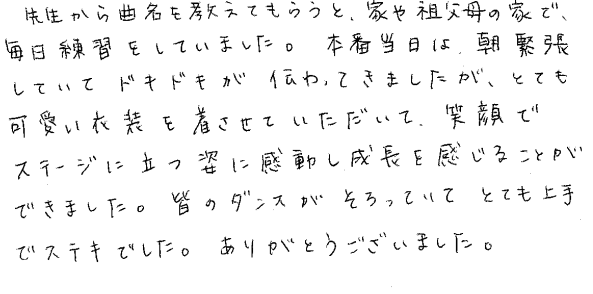 先生から曲名を教えてもらうと、家や祖父母の家で、
毎日練習をしていました。本番当日は、朝緊張
していてドキドキが伝わってきましたが、とても
可愛い衣装を着させていただいて、笑顔で
ステージに立つ姿に感動し成長を感じることが
できました。皆のダンスがそろっていてとても上手
でステキでした。ありがとうございました。